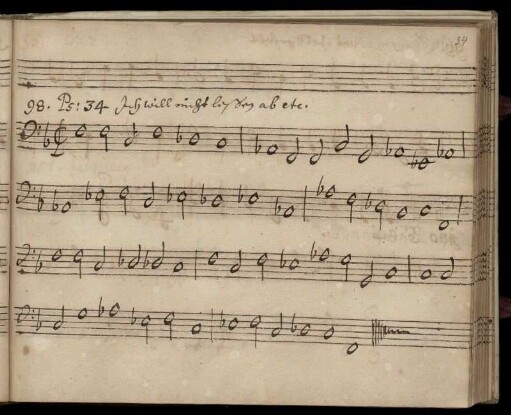 98. Ps: 34 Ich will nicht laßen ab etc.